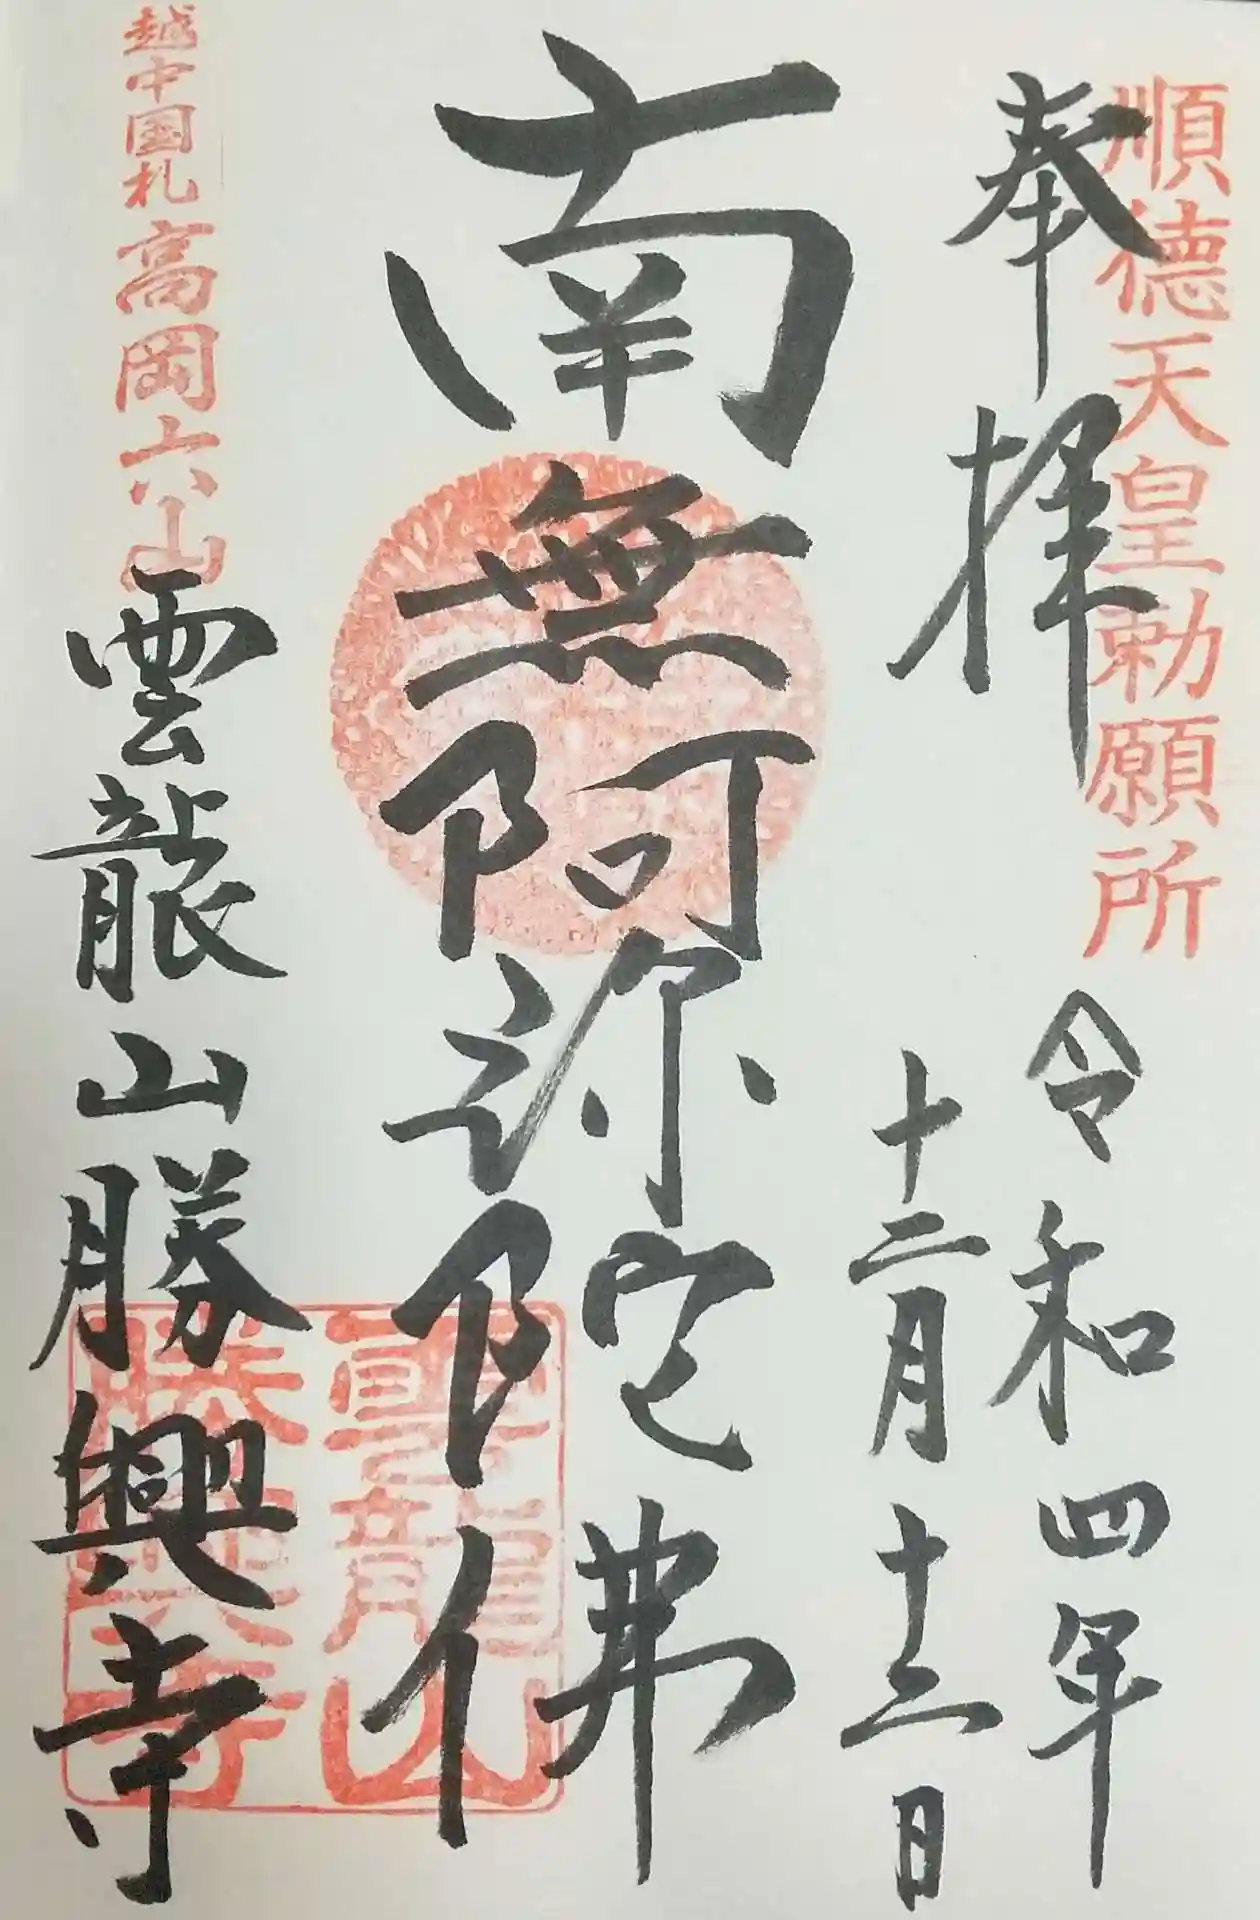 順徳天皇勅願所
奉拝
令和四年
十二月十三日
南無阿弥陀佛
越中国札高岡六山
雲龍山勝興寺
雲龍山
勝興寺